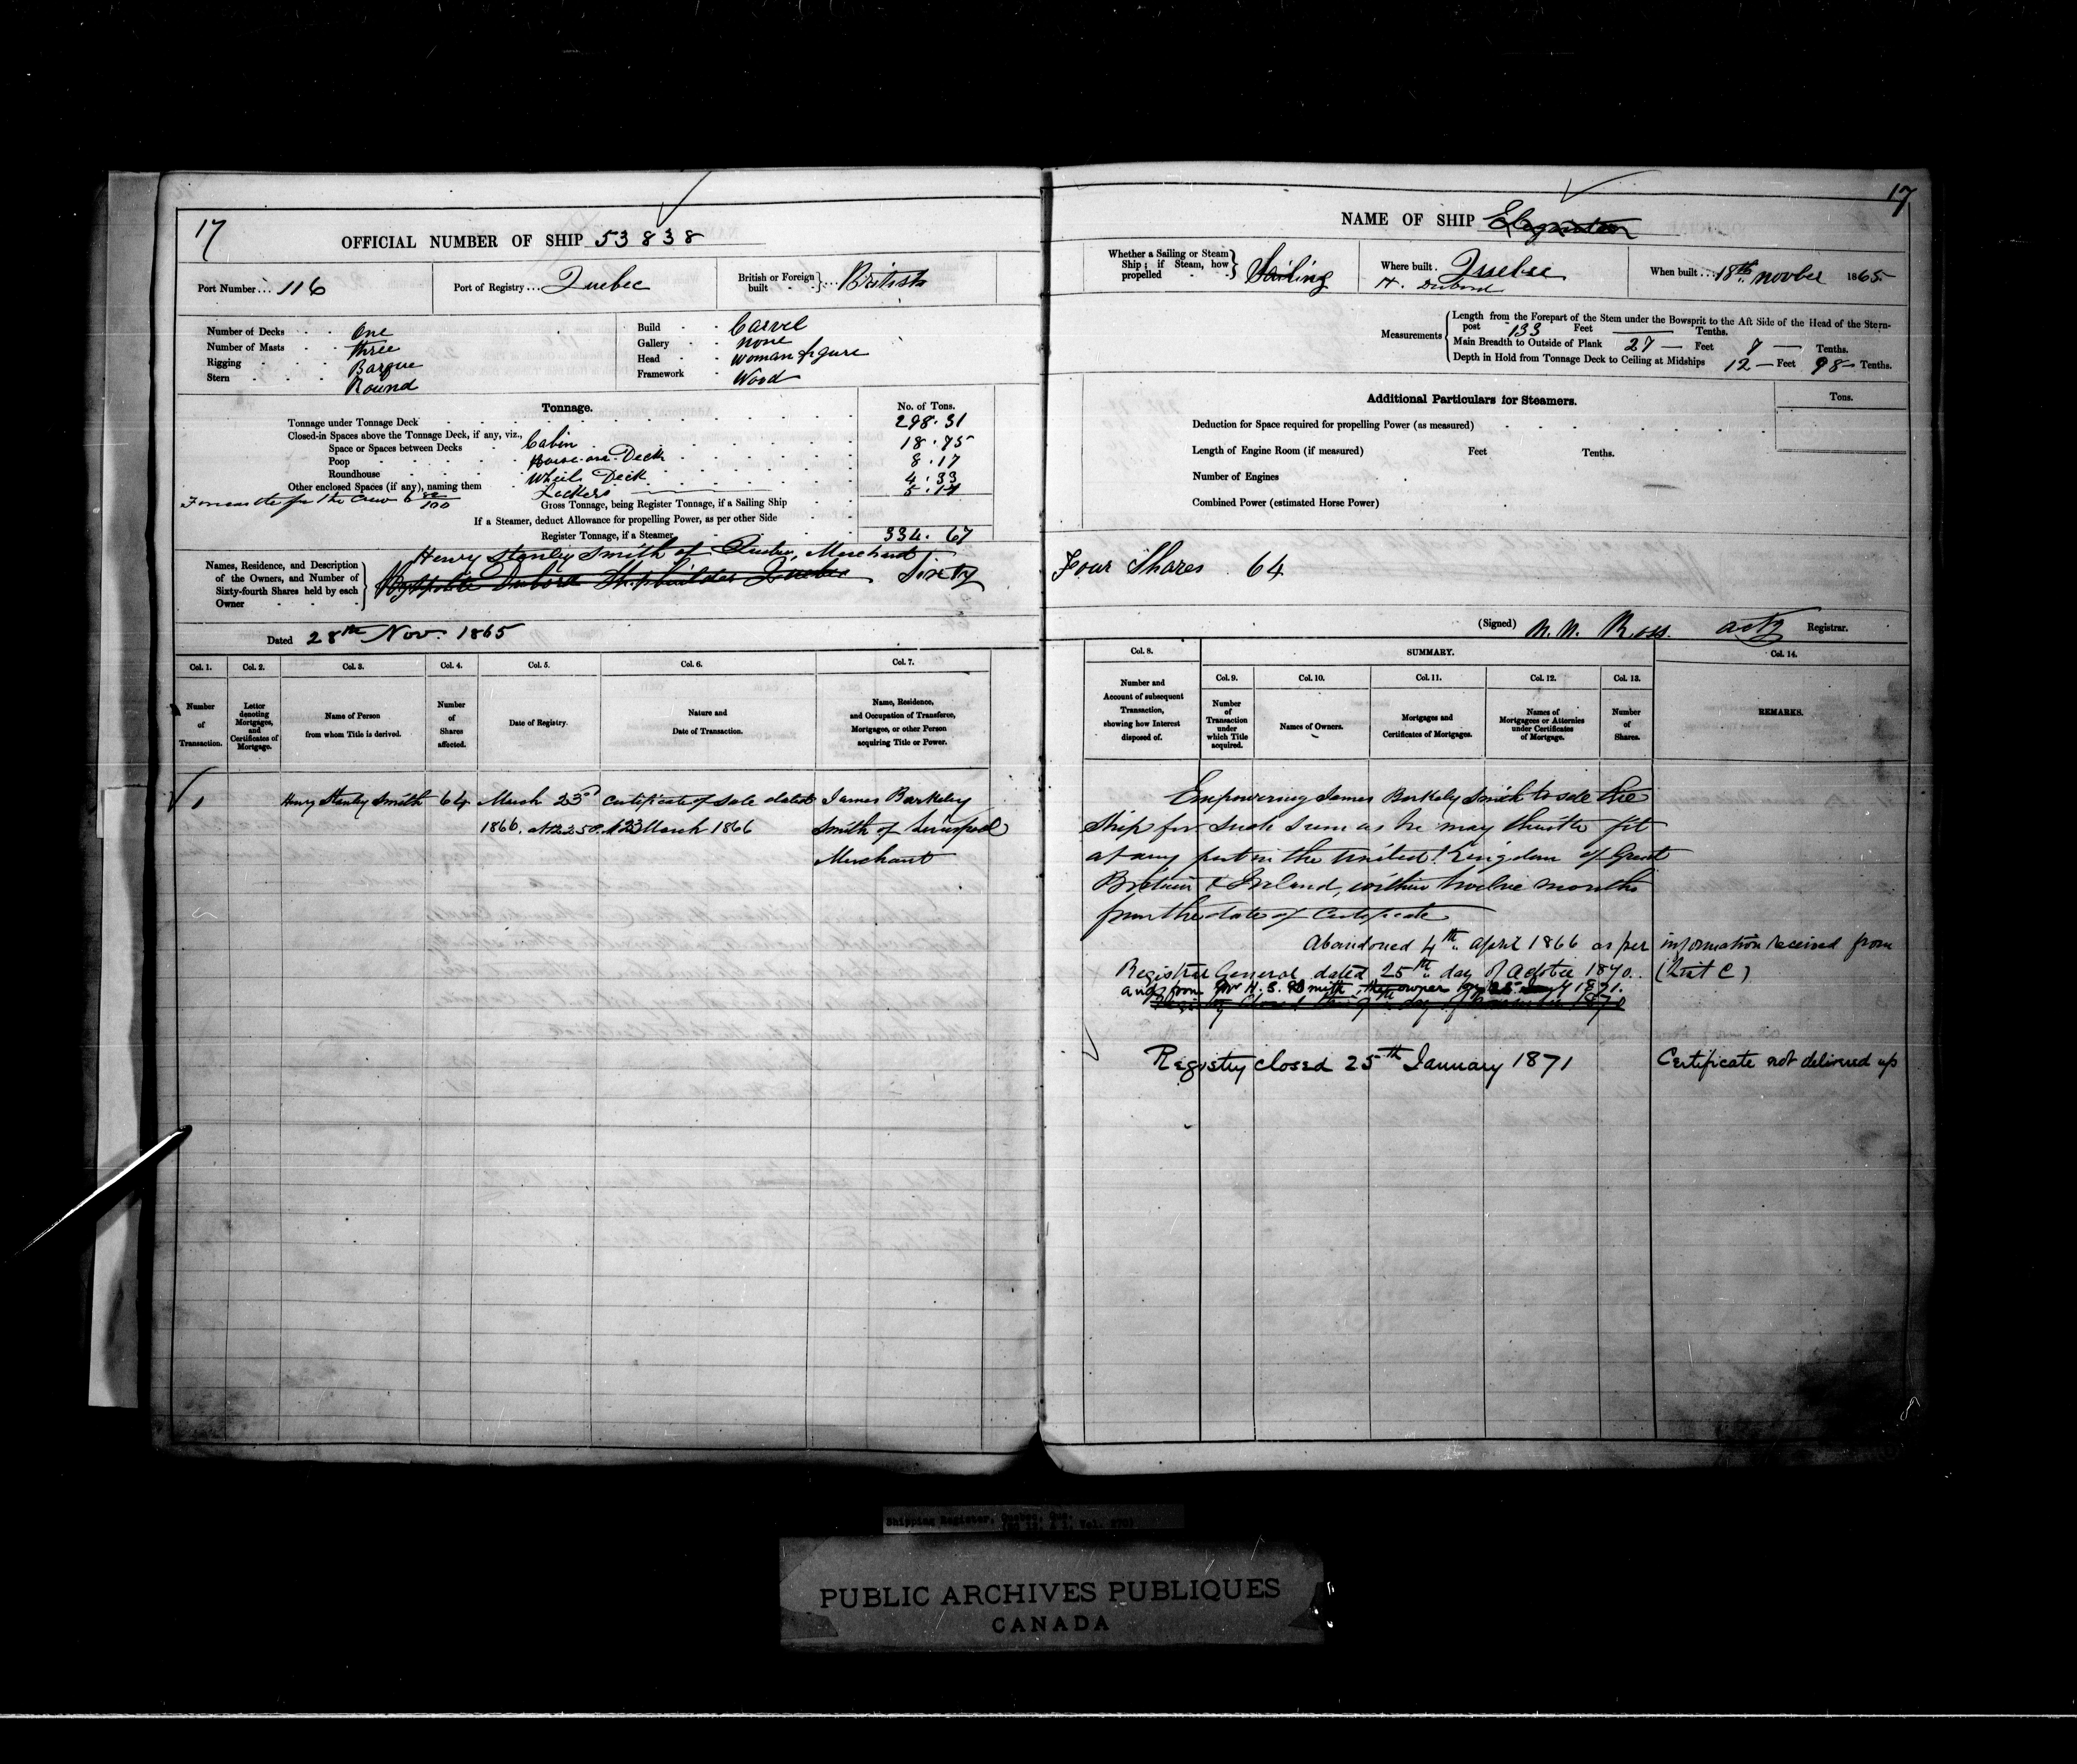 17
OFFICIAL NUMBER OF SHIP 53838
Port Number... 116
Port of Registry... Quebec
British or Foreign built } ... British
Number of Decks One
Number of Masts three
Rigging Barque
Stern Round
Build Carvel
Gallery none
Head woman figure
Framework Wood
Tonnage.
No. of Tons.
Tonnage under Tonnage Deck 298.31
Closed-in Spaces above the Tonnage Deck, if any, viz.,
Space or Spaces between Decks Cabin 18.75
Poop House on Deck 8.17
Roundhouse Wheel Deck 4.33
Other enclosed Spaces (if any), naming them Lockers
for the Crew
Gross Tonnage, being Register Tonnage, if a Sailing Ship
If a Steamer, deduct Allowance for propelling Power, as per other Side
Register Tonnage, if a Steamer 334.67
Henry Stanley Smith of Quebec, Merchant
Names, Residence, and Description of the Owners, and Number of Sixty-fourth Shares held by each Owner
Dubord Shipbuilder Quebec Sixty
Dated 28th Nov. 1865
Col. 1. Col. 2. Col. 3. Col. 4. Col. 5. Col. 6. Col. 7.
Number of Transaction.
Letter denoting Mortgages, and Certificates of Mortgage.
Name of Person from whom Title is derived.
Number of Shares affected.
Date of Registry.
Nature and Date of Transaction.
Name, Residence, and Occupation of Transferee, Mortgagee, or other Person acquiring Title or Power.
1 Henry Stanley Smith 64 March 23d Certificate of Sale dated James Barkeley
1866. at 2.50. 23 March 1866 Smith of Liverpool
Merchant
17
NAME OF SHIP
Whether a Sailing or Steam Ship; if Steam, how propelled } Sailing
Where built. Quebec
H. Dubord
When built... 18th. Novber 1865.
Measurements
Length from the Forepart of the Stem under the Bowsprit to the Aft Side of the Head of the Stern-
post 133 Feet Tenths.
Main Breadth to Outside of Plank 27 Feet 7 Tenths.
Depth in Hold from Tonnage Deck to Ceiling at Midships 12 Feet 98 Tenths.
Additional Particulars for Steamers.
Tons.
Deduction for Space required for propelling Power (as measured)
Length of Engine Room (if measured) Feet Tenths.
Number of Engines
Combined Power (estimated Horse Power)
Four Shares 64
(Signed) Ross. actg Registrar.
Col. 8. SUMMARY. Col. 14.
Col. 9. Col. 10. Col. 11. Col. 12. Col. 13.
Number and Account of subsequent Transaction, showing how Interest disposed of.
Number of Transaction under which Title acquired.
Names of Owners.
Mortgages and Certificates of Mortgages.
Names of Mortgagees or Attornies under Certificates of Mortgage.
Number of Shares.
REMARKS.
Empowering James Barkeley Smith to sell the
Ship for such sum as he may think fit
at any port in the United Kingdom of Great
Britain & Ireland, within twelve months
from the date of Certificate
Abandoned 4th. April 1866 as per information received from
Registrar General dated 25th. day of October 1870. (List C)
and from Mr H. S. Smith, the owner 1871.
Registry closed 25th January 1871 Certificate not delivered up
Shipping Register, Quebec, Que.
PUBLIC ARCHIVES PUBLIQUES
CANADA